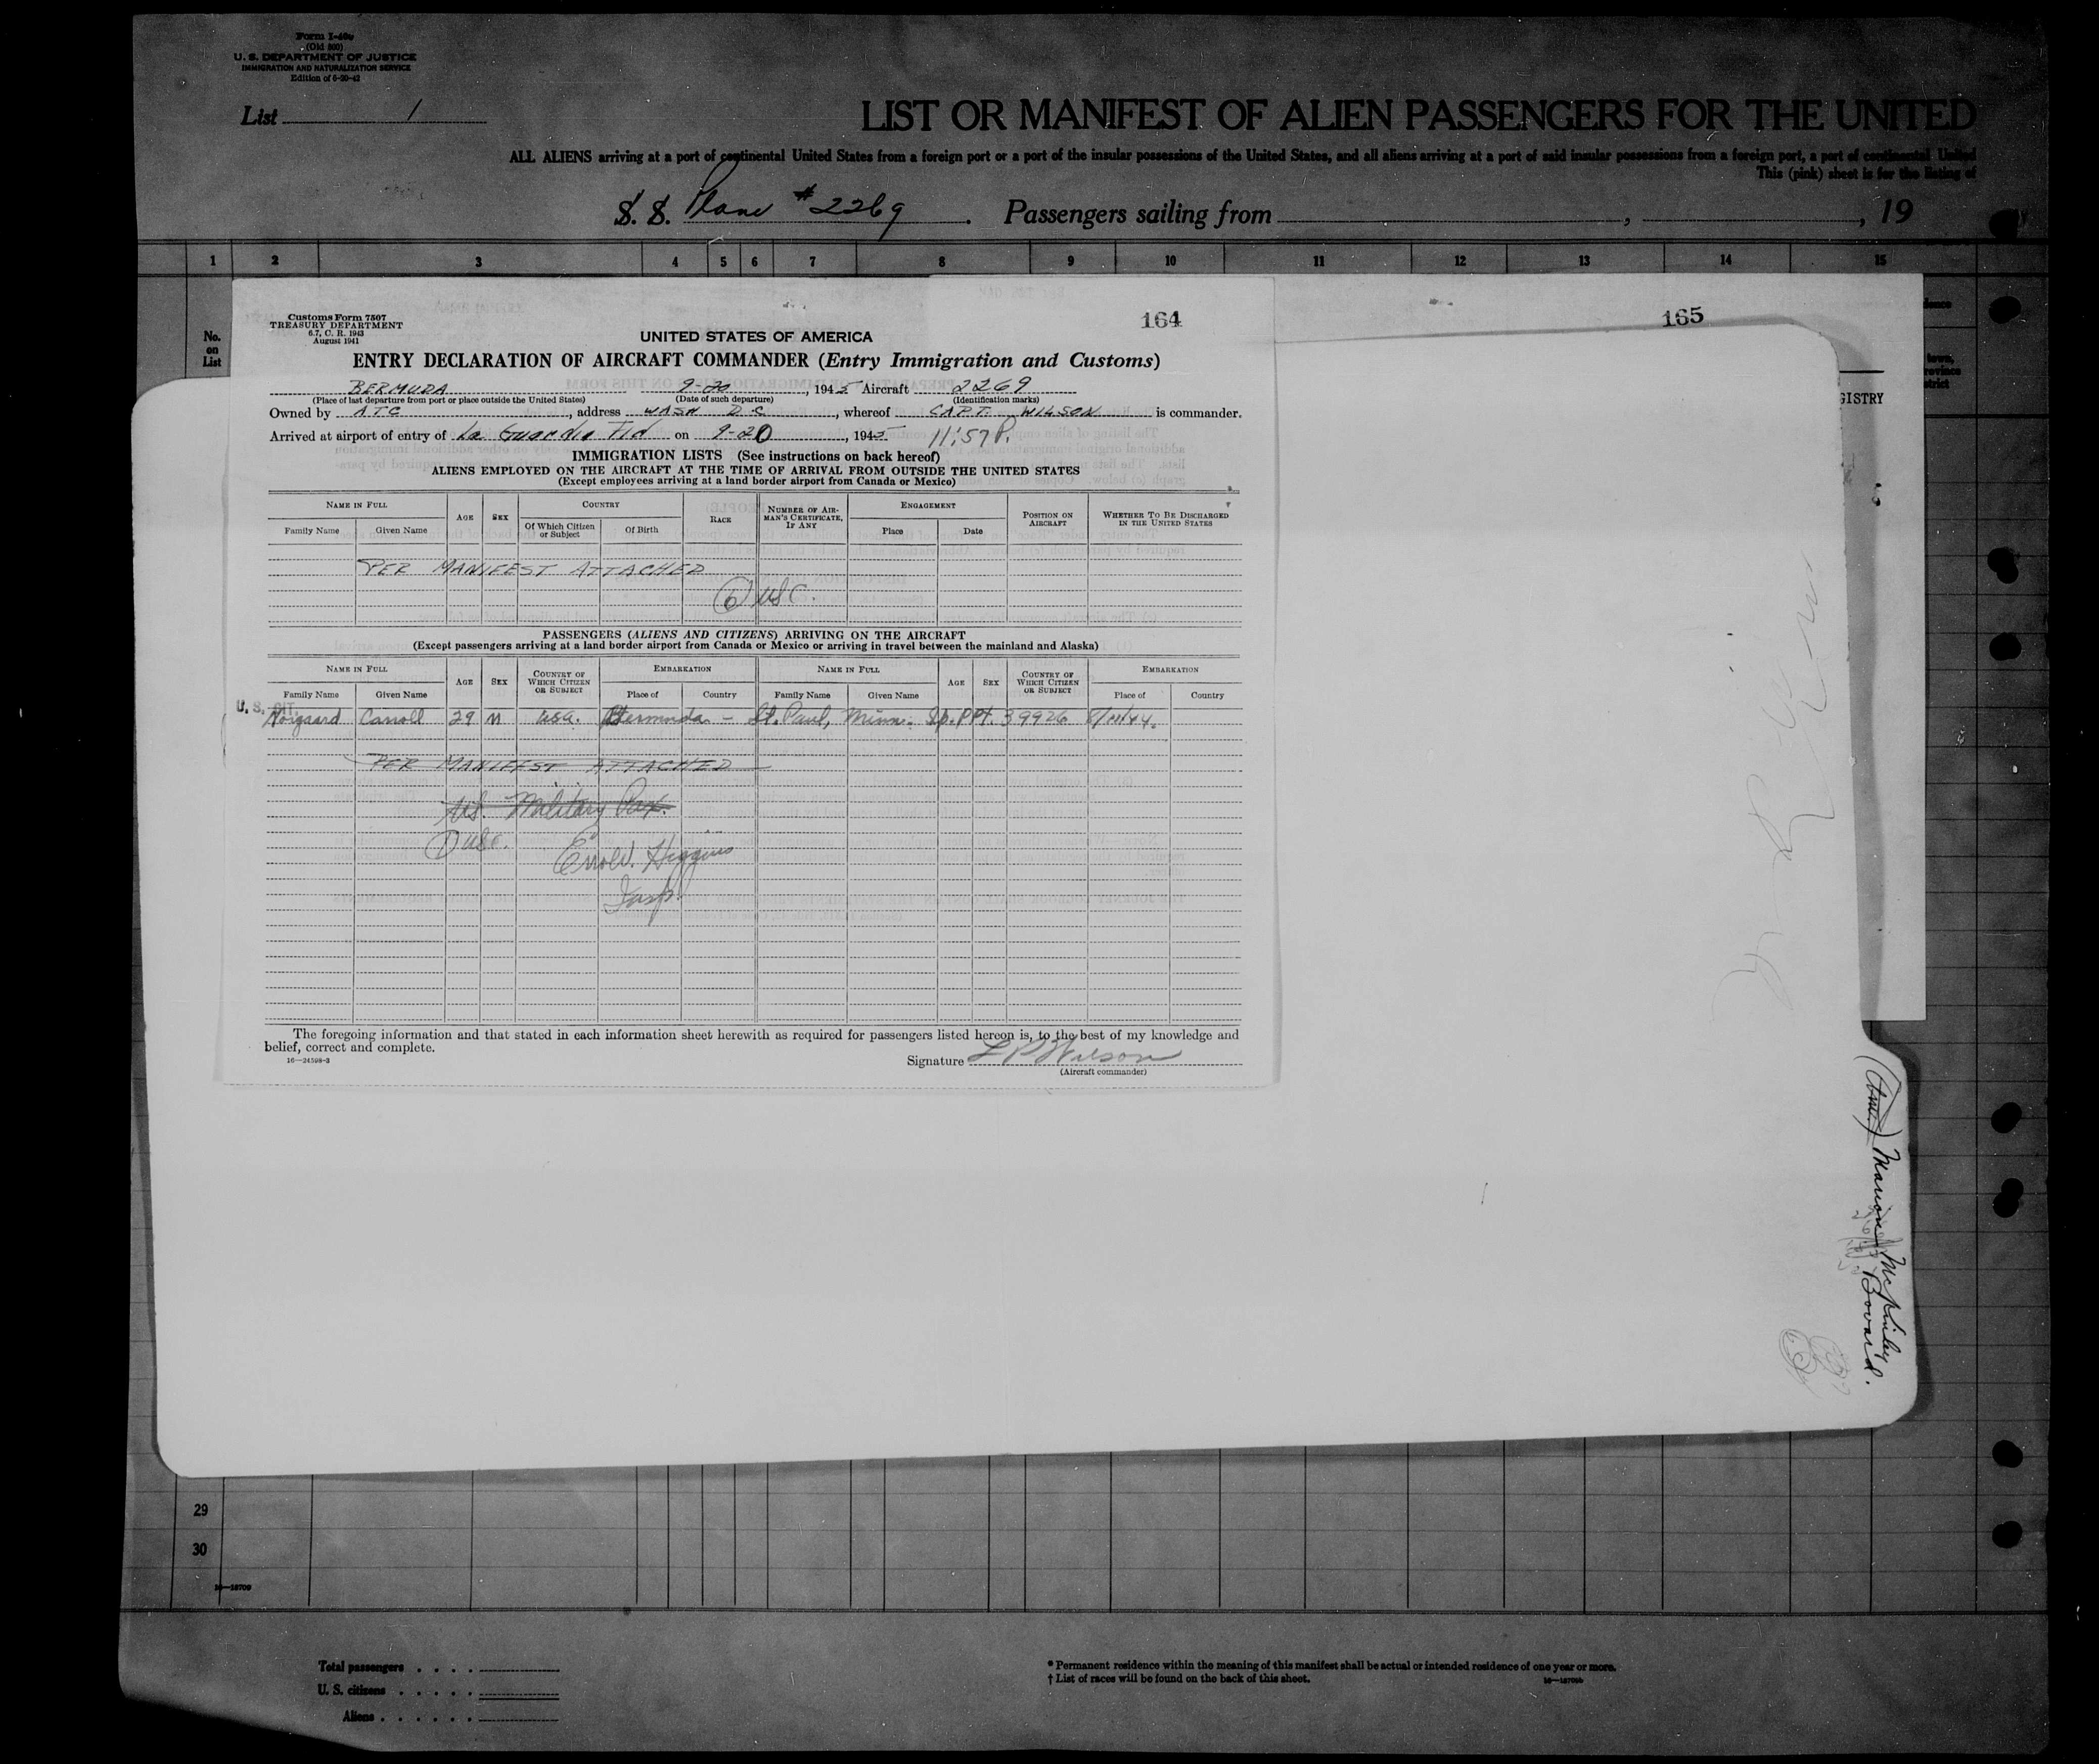 Form I-400
(Old 500)
U. S. DEPARTMENT OF JUSTICE
IMMIGRATION AND NATURALIZATION SERVICE
Edition of 6-20-42
List 1
LIST OR MANIFEST OF ALIEN PASSENGERS FOR THE UNITED
ALL ALIENS arriving at a port of continental United States from a foreign port or a port of the insular possessions of the United States, and all aliens arriving at a port of said insular possessions from a foreign port, a port of continental United
This (pink) sheet is for the listing of
S. S. Plane #2269 . Passengers sailing from , , 19
1 2 3 4 5 6 7 8 9 10 11 12 13 14 15
No. on List
164
165
GISTRY
Customs Form 7507
TREASURY DEPARTMENT
6.7, C. R. 1943
August 1941
UNITED STATES OF AMERICA
ENTRY DECLARATION OF AIRCRAFT COMMANDER (Entry Immigration and Customs)
BERMUDA 9-20, 1945 Aircraft 2269
(Place of last departure from port or place outside the United States) (Date of such departure) (Identification marks)
Owned by A.T.C, address WASH D C, whereof CAPT. WILSON is commander.
Arrived at airport of entry of La Guardia Fld on 9-20, 1945 11:57 P.
IMMIGRATION LISTS (See instructions on back hereof)
ALIENS EMPLOYED ON THE AIRCRAFT AT THE TIME OF ARRIVAL FROM OUTSIDE THE UNITED STATES
(Except employees arriving at a land border airport from Canada or Mexico)
NAME IN FULL AGE SEX COUNTRY RACE NUMBER OF AIRMAN'S CERTIFICATE, IF ANY ENGAGEMENT POSITION ON AIRCRAFT WHETHER TO BE DISCHARGED IN THE UNITED STATES
Family Name Given Name Of Which Citizen or Subject Of Birth Place Date
PER MANIFEST ATTACHED
6 USC.
PASSENGERS (ALIENS AND CITIZENS) ARRIVING ON THE AIRCRAFT
(Except passengers arriving at a land border airport from Canada or Mexico or arriving in travel between the mainland and Alaska)
NAME IN FULL AGE SEX COUNTRY OF WHICH CITIZEN OR SUBJECT EMBARKATION NAME IN FULL AGE SEX COUNTRY OF WHICH CITIZEN OR SUBJECT EMBARKATION
Family Name Given Name Place of Country Family Name Given Name Place of Country
U. S. CIT.
Norgaard Carroll 29 M USA. Bermuda - St. Paul, Minn. Sp. PPt. 39926 8/11/44.
PER MANIFEST ATTACHED
US. Military Pax.
1 USC.
Errol V. Higgins
Insp.
The foregoing information and that stated in each information sheet herewith as required for passengers listed hereon is, to the best of my knowledge and
belief, correct and complete.
16—24598-3
Signature L P Wilson
(Aircraft commander)
Marion McKinley
Bovard.
29
30
16—18709
Total passengers . . . .
U. S. citizens . . . . .
Aliens . . . . . .
* Permanent residence within the meaning of this manifest shall be actual or intended residence of one year or more.
† List of races will be found on the back of this sheet.